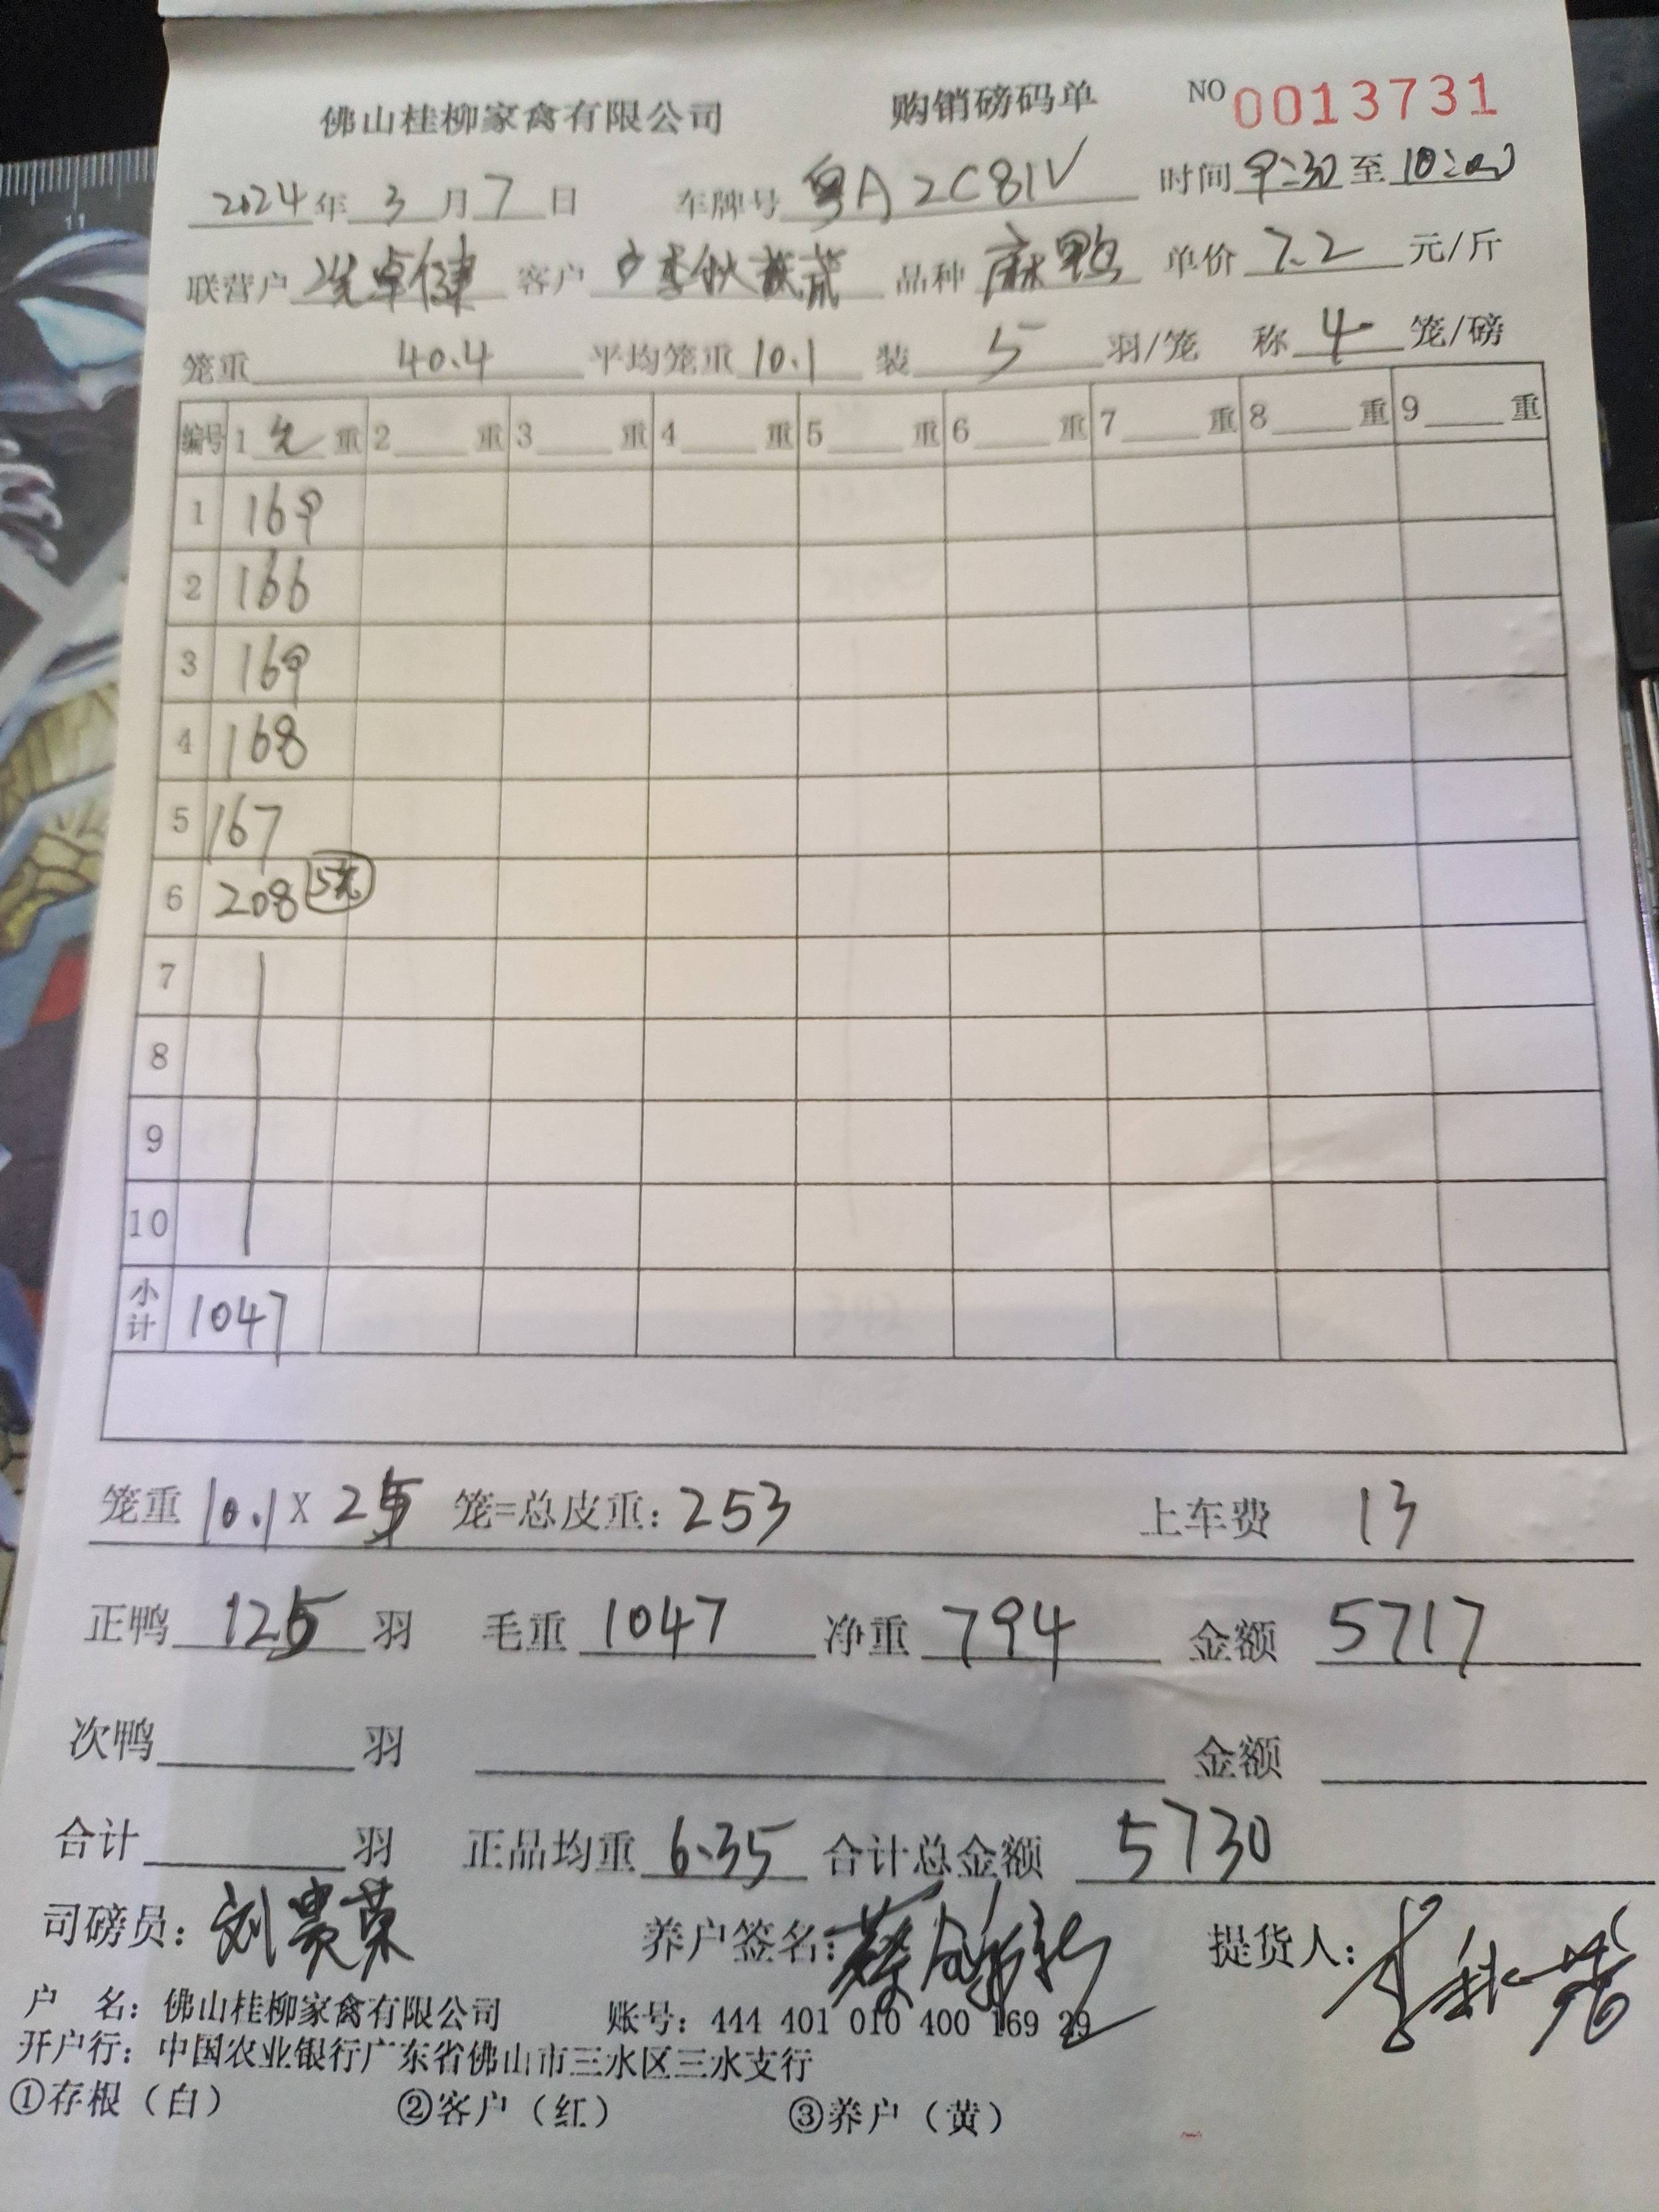 佛山桂柳家禽有限公司 购销磅码单 NO 0013731
2024年 3 月 7 日 车牌号 粤A 2C81V 时间 9:30 至 10:00
联营户 冼卓健 客户 李秋 品种 麻鸭 单价 7.2 元/斤
笼重 40.4 平均笼重 10.1 装 5 羽/笼 称 4 笼/磅
编号 1 重 2 重 3 重 4 重 5 重 6 重 7 重 8 重 9 重
1 169
2 166
3 169
4 168
5 167
6 208
7
8
9
10
小计 1047
笼重 10.1 X 25 笼=总皮重: 253 上车费 13
正鸭 125 羽 毛重 1047 净重 794 金额 5717
次鸭 羽 金额
合计 羽 正品均重 6.35 合计总金额 5730
司磅员: 刘贵荣 养户签名: 蔡 提货人: 李秋
户 名: 佛山桂柳家禽有限公司 账号: 444 401 010 400 169 29
开户行: 中国农业银行广东省佛山市三水区三水支行
①存根（白） ②客户（红） ③养户（黄）
11